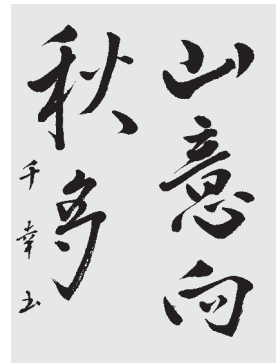 山意向
秋多
千幸书